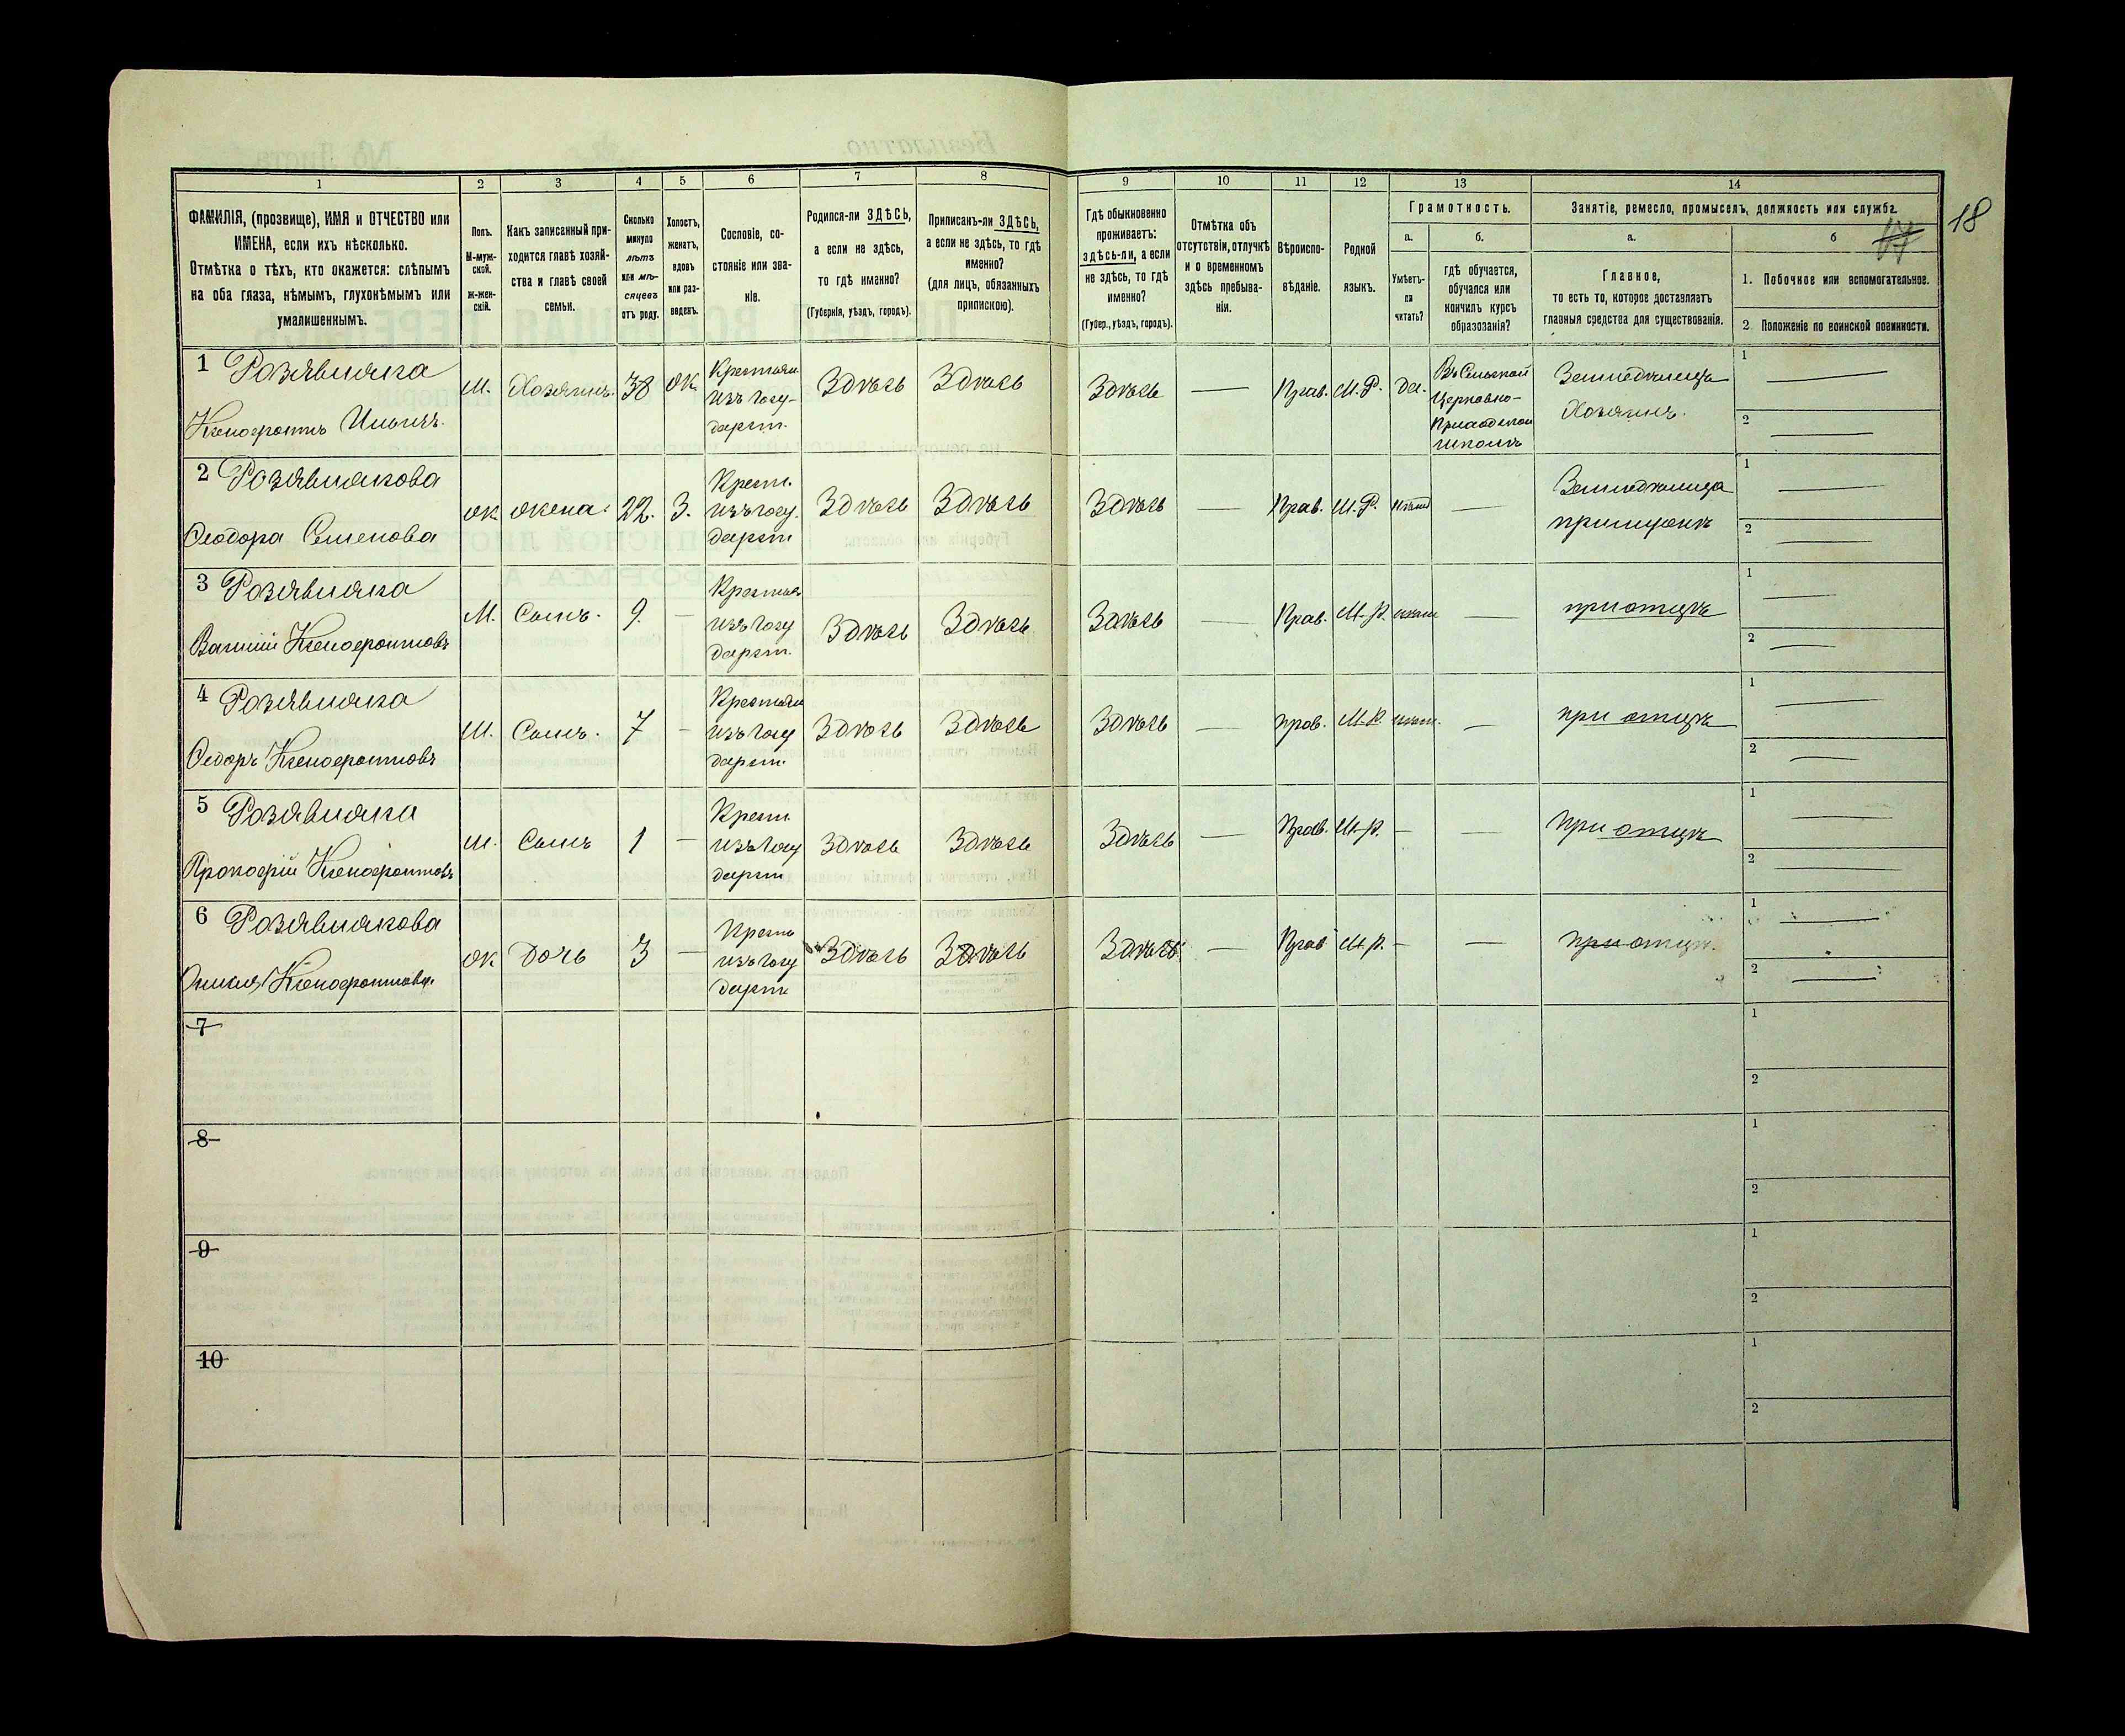 1 2 3 4 5 6 7 8 9 10 11 12 13 14
18
17
ФАМИЛІЯ, (прозвище), ИМЯ и ОТЧЕСТВО или
ИМЕНА, если ихъ нѣсколько.
Отмѣтка о тѣхъ, кто окажется: слѣпымъ
на оба глаза, нѣмымъ, глухонѣмымъ или
умалишеннымъ.
Полъ.
М-муж-
ской.
ж-жен-
скій.
Какъ записанный при-
ходится главѣ хозяй-
ства и главѣ своей
семьи.
Сколько
минуло
лѣтъ
или мѣ-
сяцевъ
отъ роду.
Холостъ,
женатъ,
вдовъ
или раз-
веденъ.
Сословіе, со-
стояніе или зва-
ніе.
Родился-ли ЗДѢСЬ,
а если не здѣсь,
то гдѣ именно?
(Губернія, уѣздъ, городъ).
Приписанъ-ли ЗДѢСЬ,
а если не здѣсь, то гдѣ
именно?
(для лицъ, обязанныхъ
припискою).
Гдѣ обыкновенно
проживаетъ:
здѣсь-ли, а если
не здѣсь, то гдѣ
именно?
(Губер., уѣздъ, городъ).
Отмѣтка объ
отсутствіи, отлучкѣ
и о временномъ
здѣсь пребыва-
ніи.
Вѣроиспо-
вѣданіе.
Родной
языкъ.
Грамотность.
а. б.
Умѣетъ-
ли
читать?
гдѣ обучается,
обучался или
кончилъ курсъ
образованія?
Занятіе, ремесло, промыселъ, должность или служба.
а. б
Главное,
то есть то, которое доставляетъ
главныя средства для существованія.
1. Побочное или вспомогательное.
2. Положеніе по воинской повинности.
1 Розявлюка
Ксенофонтъ Ильичъ.
М. Хозяинъ. 38 Ж.
Крестьян
изъ Госу-
дарст.
Здѣсь Здѣсь Здѣсь — Прав. М.Р. да.
Въ Сельской
Церковно-
Приходской
школѣ
Земледѣлецъ
Хозяинъ.
1 —
2 —
2 Розявлюкова
Ѳеодора Семенова
Ж жена. 22. З.
Крест.
изъ Госу.
дарст
Здѣсь Здѣсь Здѣсь — Прав. М.Р. —
Земледѣлица
при мужѣ
1 —
2 —
3 Розявлюка
Василій Ксенофонтовъ
М. Сынъ. 9. —
Крестьян
изъ Госу
дарст.
Здѣсь Здѣсь Здѣсь — Прав. М.Р. —
при отцѣ
1 —
2 —
4 Розявлюка
Ѳедоръ Ксенофонтовъ
М. Сынъ. 7 —
Крестьян
изъ Госу
дарст.
Здѣсь Здѣсь Здѣсь — прав. М.Р. —
при отцѣ
1 —
2 —
5 Розявлюка
Прокофій Ксенофонтовъ
М. Сынъ 1 —
Крест
изъ Госу
дарст
Здѣсь Здѣсь Здѣсь — Прав. М.р. — —
при отцѣ
1 —
2 —
6 Розявлюкова
Ксенофонтова.
Ж Дочь 3 —
Крест
изъ Госу
дарст
Здѣсь Здѣсь Здѣсь — Прав М.р. — —
при отцѣ.
1 —
2 —
7
1
2
8
1
2
9
1
2
10
1
2